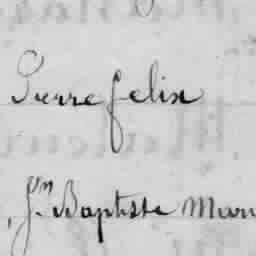 Pierre felix
, Jn Baptiste Mari